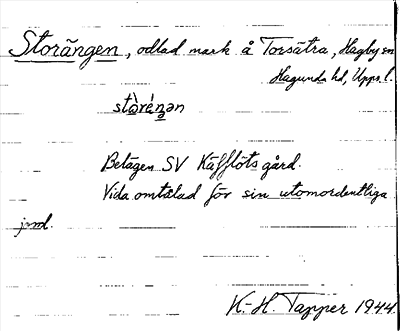 Storängen, odlad mark å Torsätra, Hagby sn
Hagunda hd, Upps l.
stòrǽŋən
Belägen SV Käfflöts gård.
Vida omtalad för sin utomordentliga
jord.
K.-H. Tapper 1944.